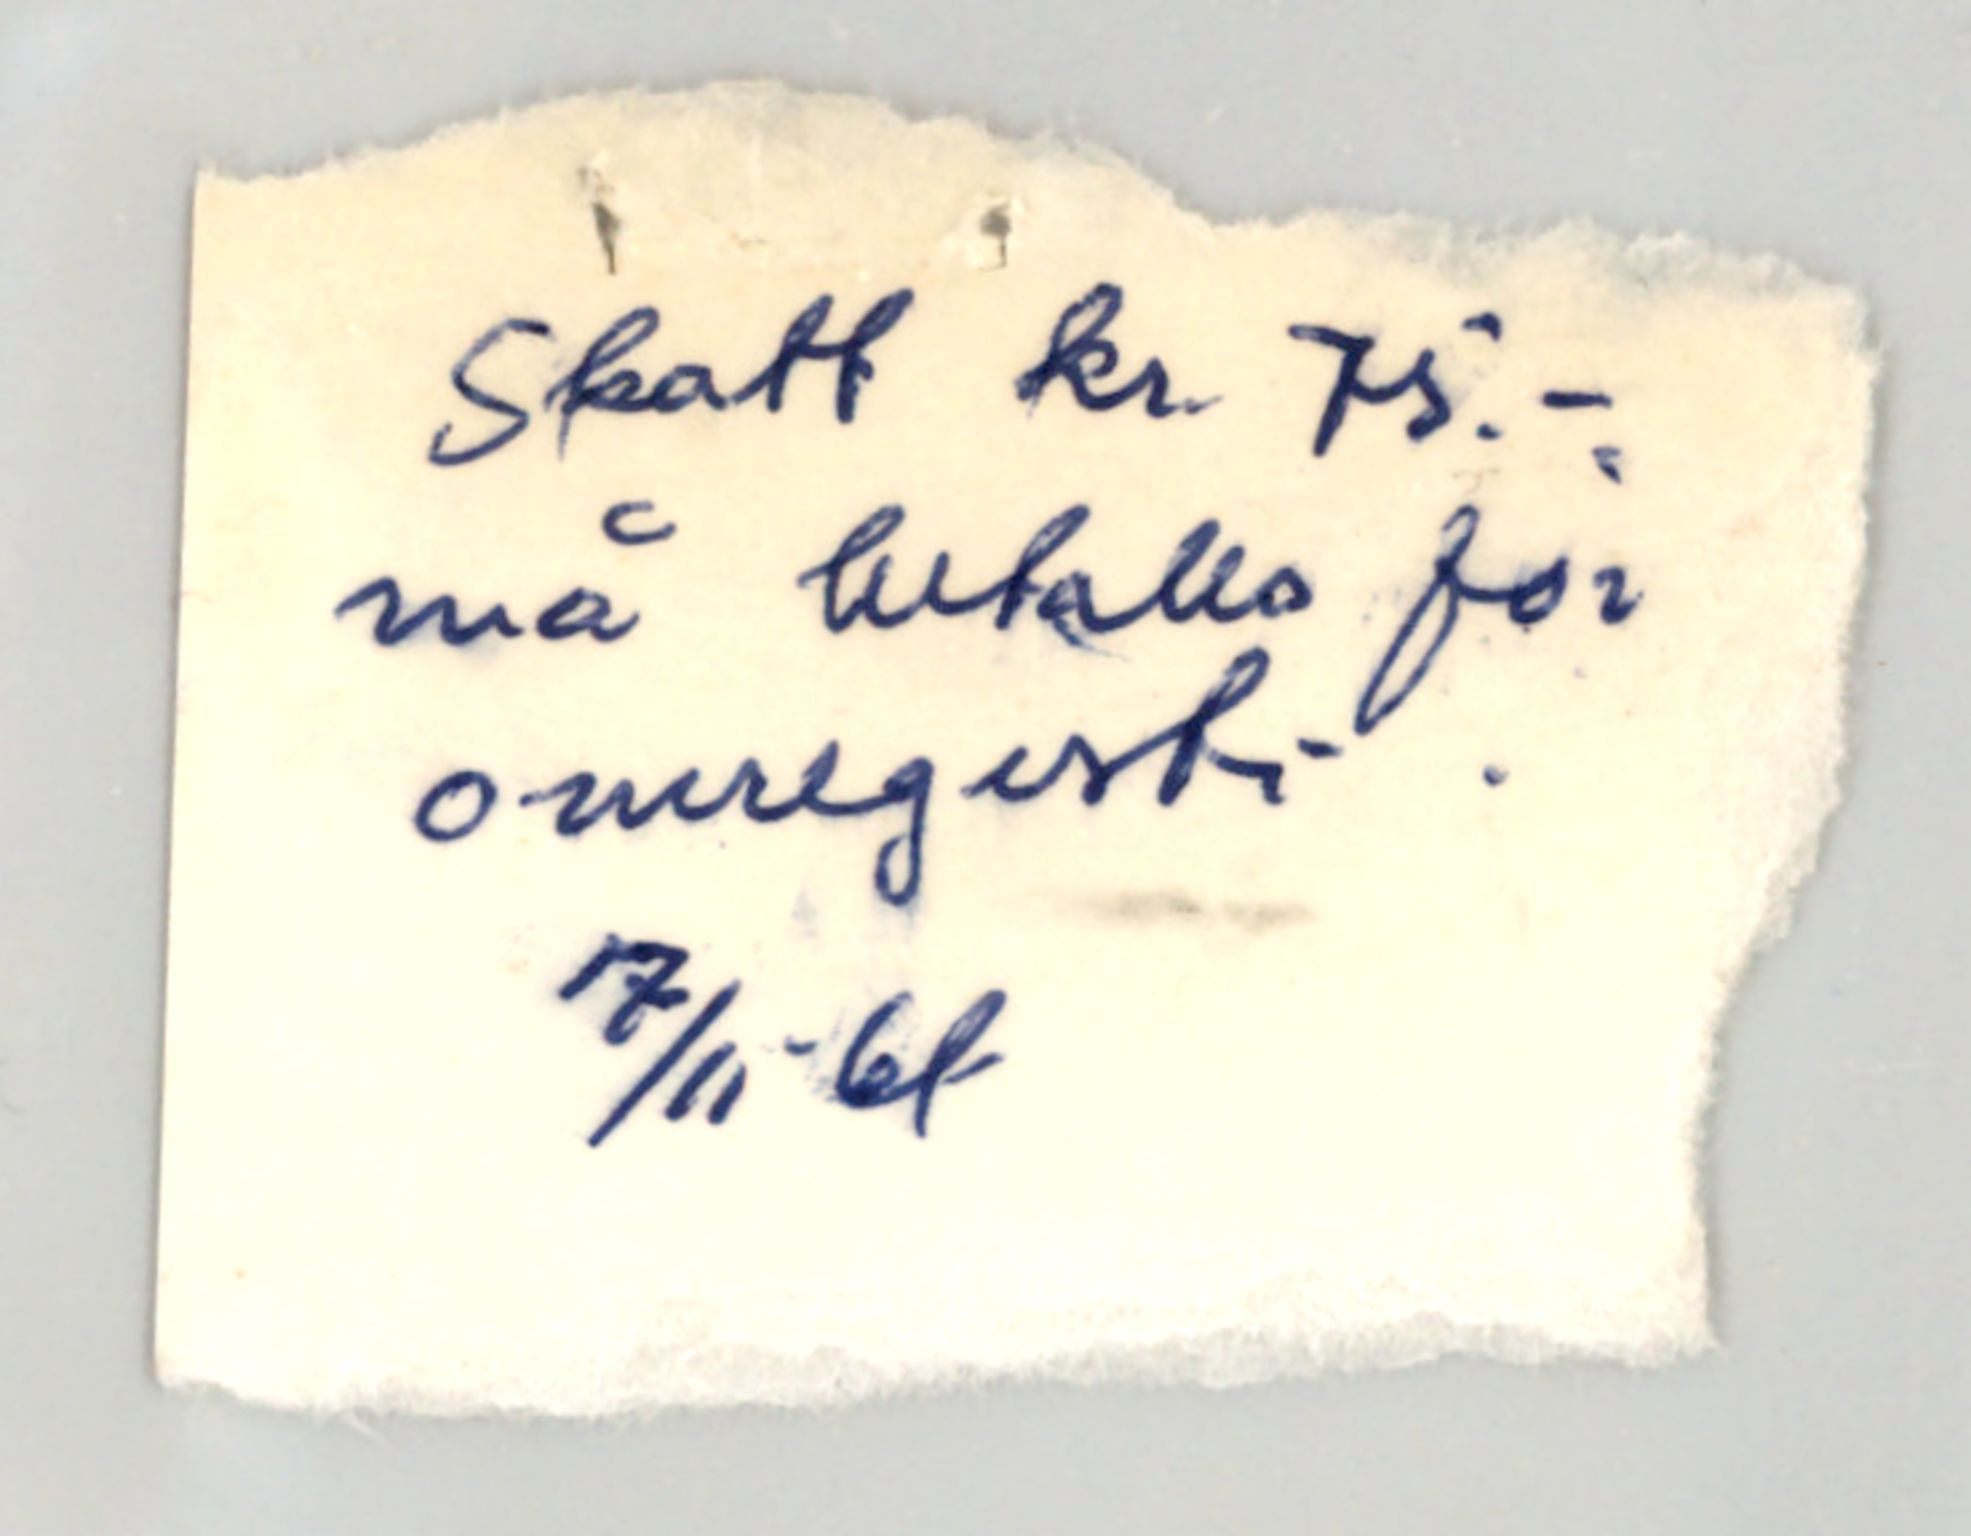 Skatt kr. 75.-
må betales før
omregistr.
17/11-64